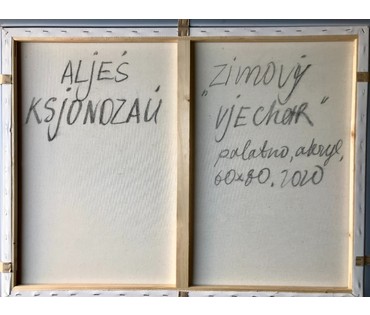 ALJEŚ
KSJONDZAŬ
"Zimový
vjechar"
palatno, akryl,
60x80, 2020